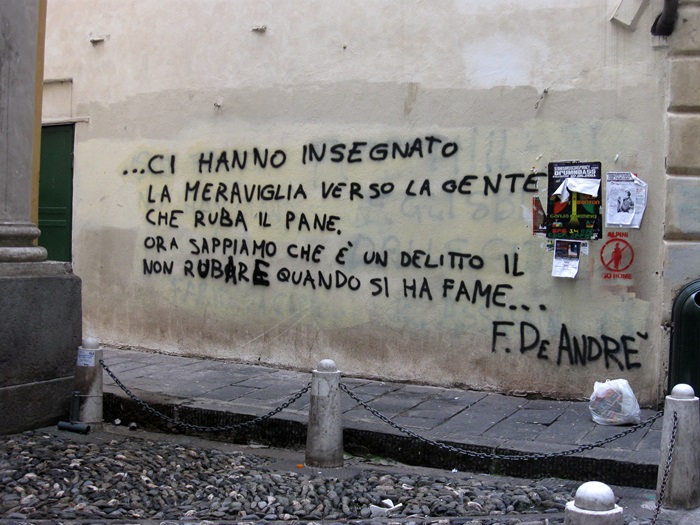 ...CI HANNO INSEGNATO
LA MERAVIGLIA VERSO LA GENTE
CHE RUBA IL PANE.
ORA SAPPIAMO CHE È UN DELITTO IL
NON RUBARE QUANDO SI HA FAME...
F. DE ANDRE`
DRUMNBASS
ALPINI
GO HOME